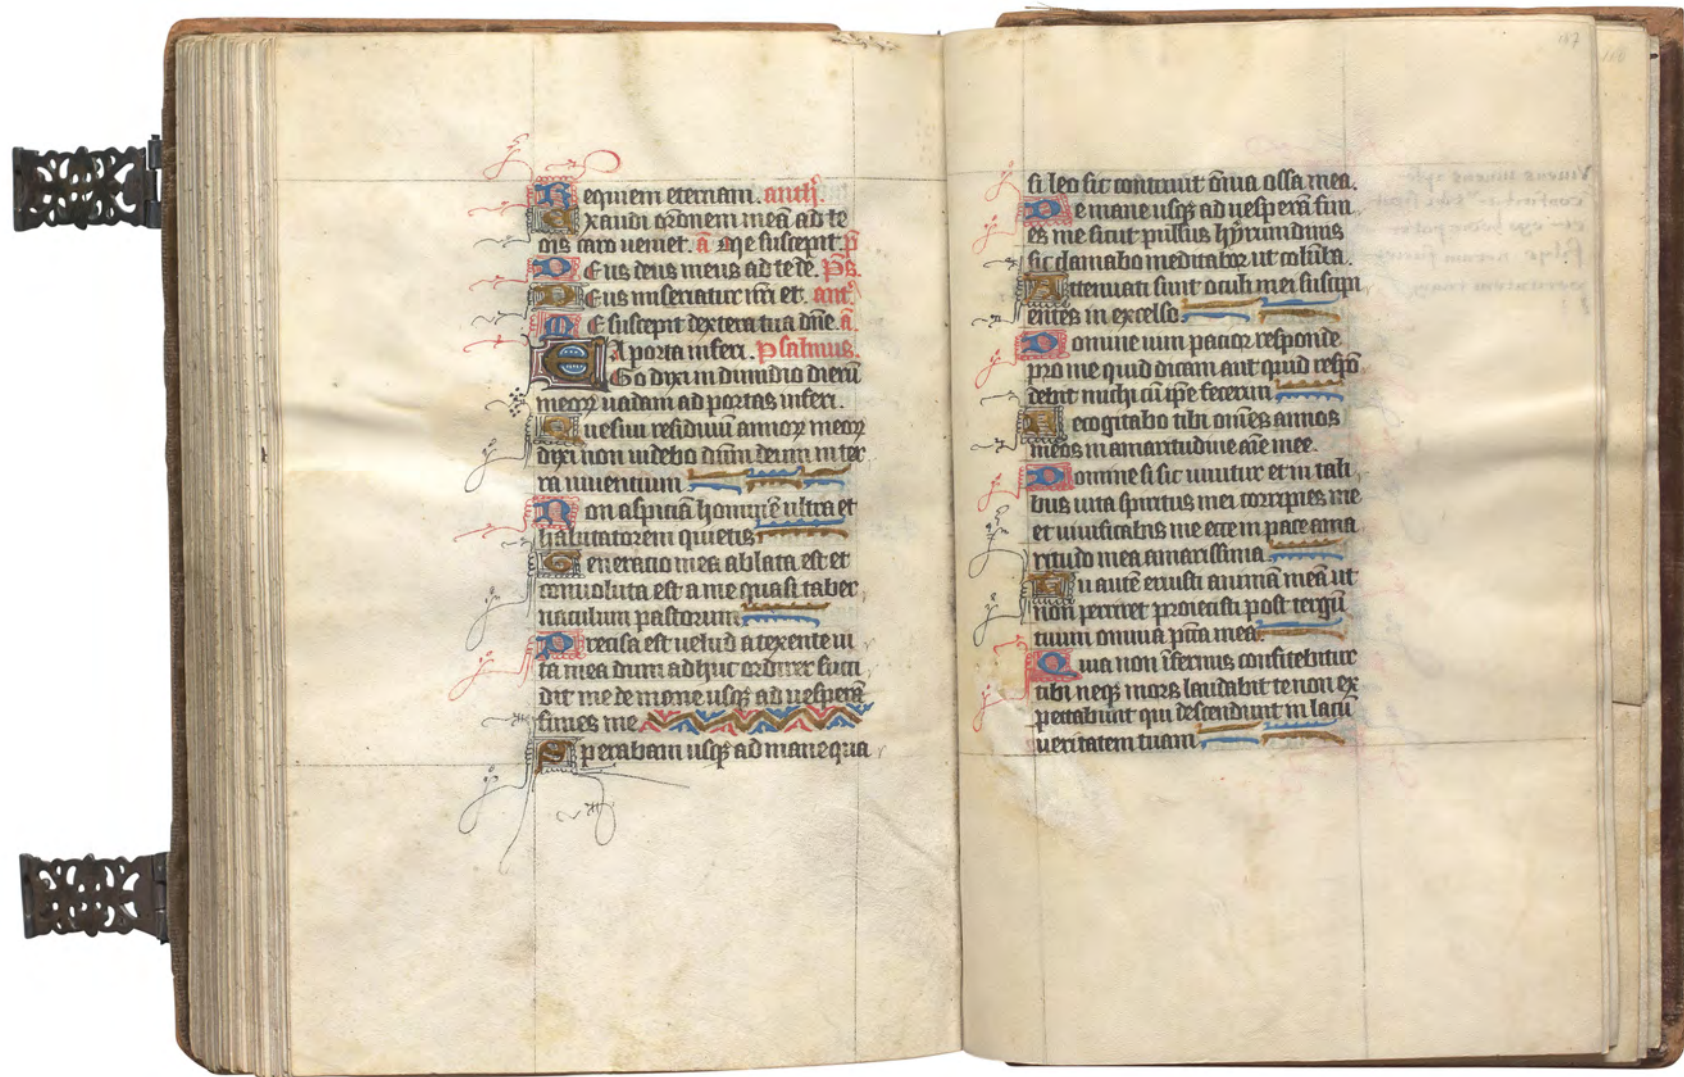 Requiem eternam. anth̄.
Exaudi or̄onem meā ad te
ois caro ueniet. ā Me suscepit. p̄
Deus deus meus ad te de. p̄s.
Deus misereatur nr̄i et. ant̄.
Me suscepit dextera tua dn̄e. ā.
A porta inferi. Psalmus.
EGo dixi in dimidio dierū
meoꝝ uadam ad portas inferi.
Quesiui residuū annoꝝ meoꝝ
dixi non uidebo dn̄m deum in ter
ra uiuentium
Non aspiciā hominē ultra et
habitatorem quietis
Generatio mea ablata est et
conuoluta est a me quasi taber
naculum pastorum
Precisa est uelud a texente ui
ta mea dum adhuc ordirer succi
dit me de mane usqꝫ ad uesperā
finies me
Sperabam usqꝫ ad mane qua
si leo sic contriuit ōnia ossa mea.
De mane usqꝫ ad uesperā fini
es me sicut pullus hyrundinis
sic clamabo meditabor ut colūba.
Attenuati sunt oculi mei suscipi
entes in excelso
Domine uim patior responde
pro me quid dicam aut quid respō
debit michi cū ip̄e fecerim
Recogitabo tibi om̄es annos
meos in amaritudine aīe mee.
Domine si sic uiuitur et in tali
bus uita spiritus mei corripies me
et uiuificabis me ecce in pace ama
ritudo mea amarissima
Tu autē eruisti animā meā ut
non periret proiecisti post tergū
tuum omnia pc̄ta mea
Quia non īfernus confitebitur
tibi neqꝫ mors laudabit te non ex
pectabunt qui descendunt in lacū
ueritatem tuam
187